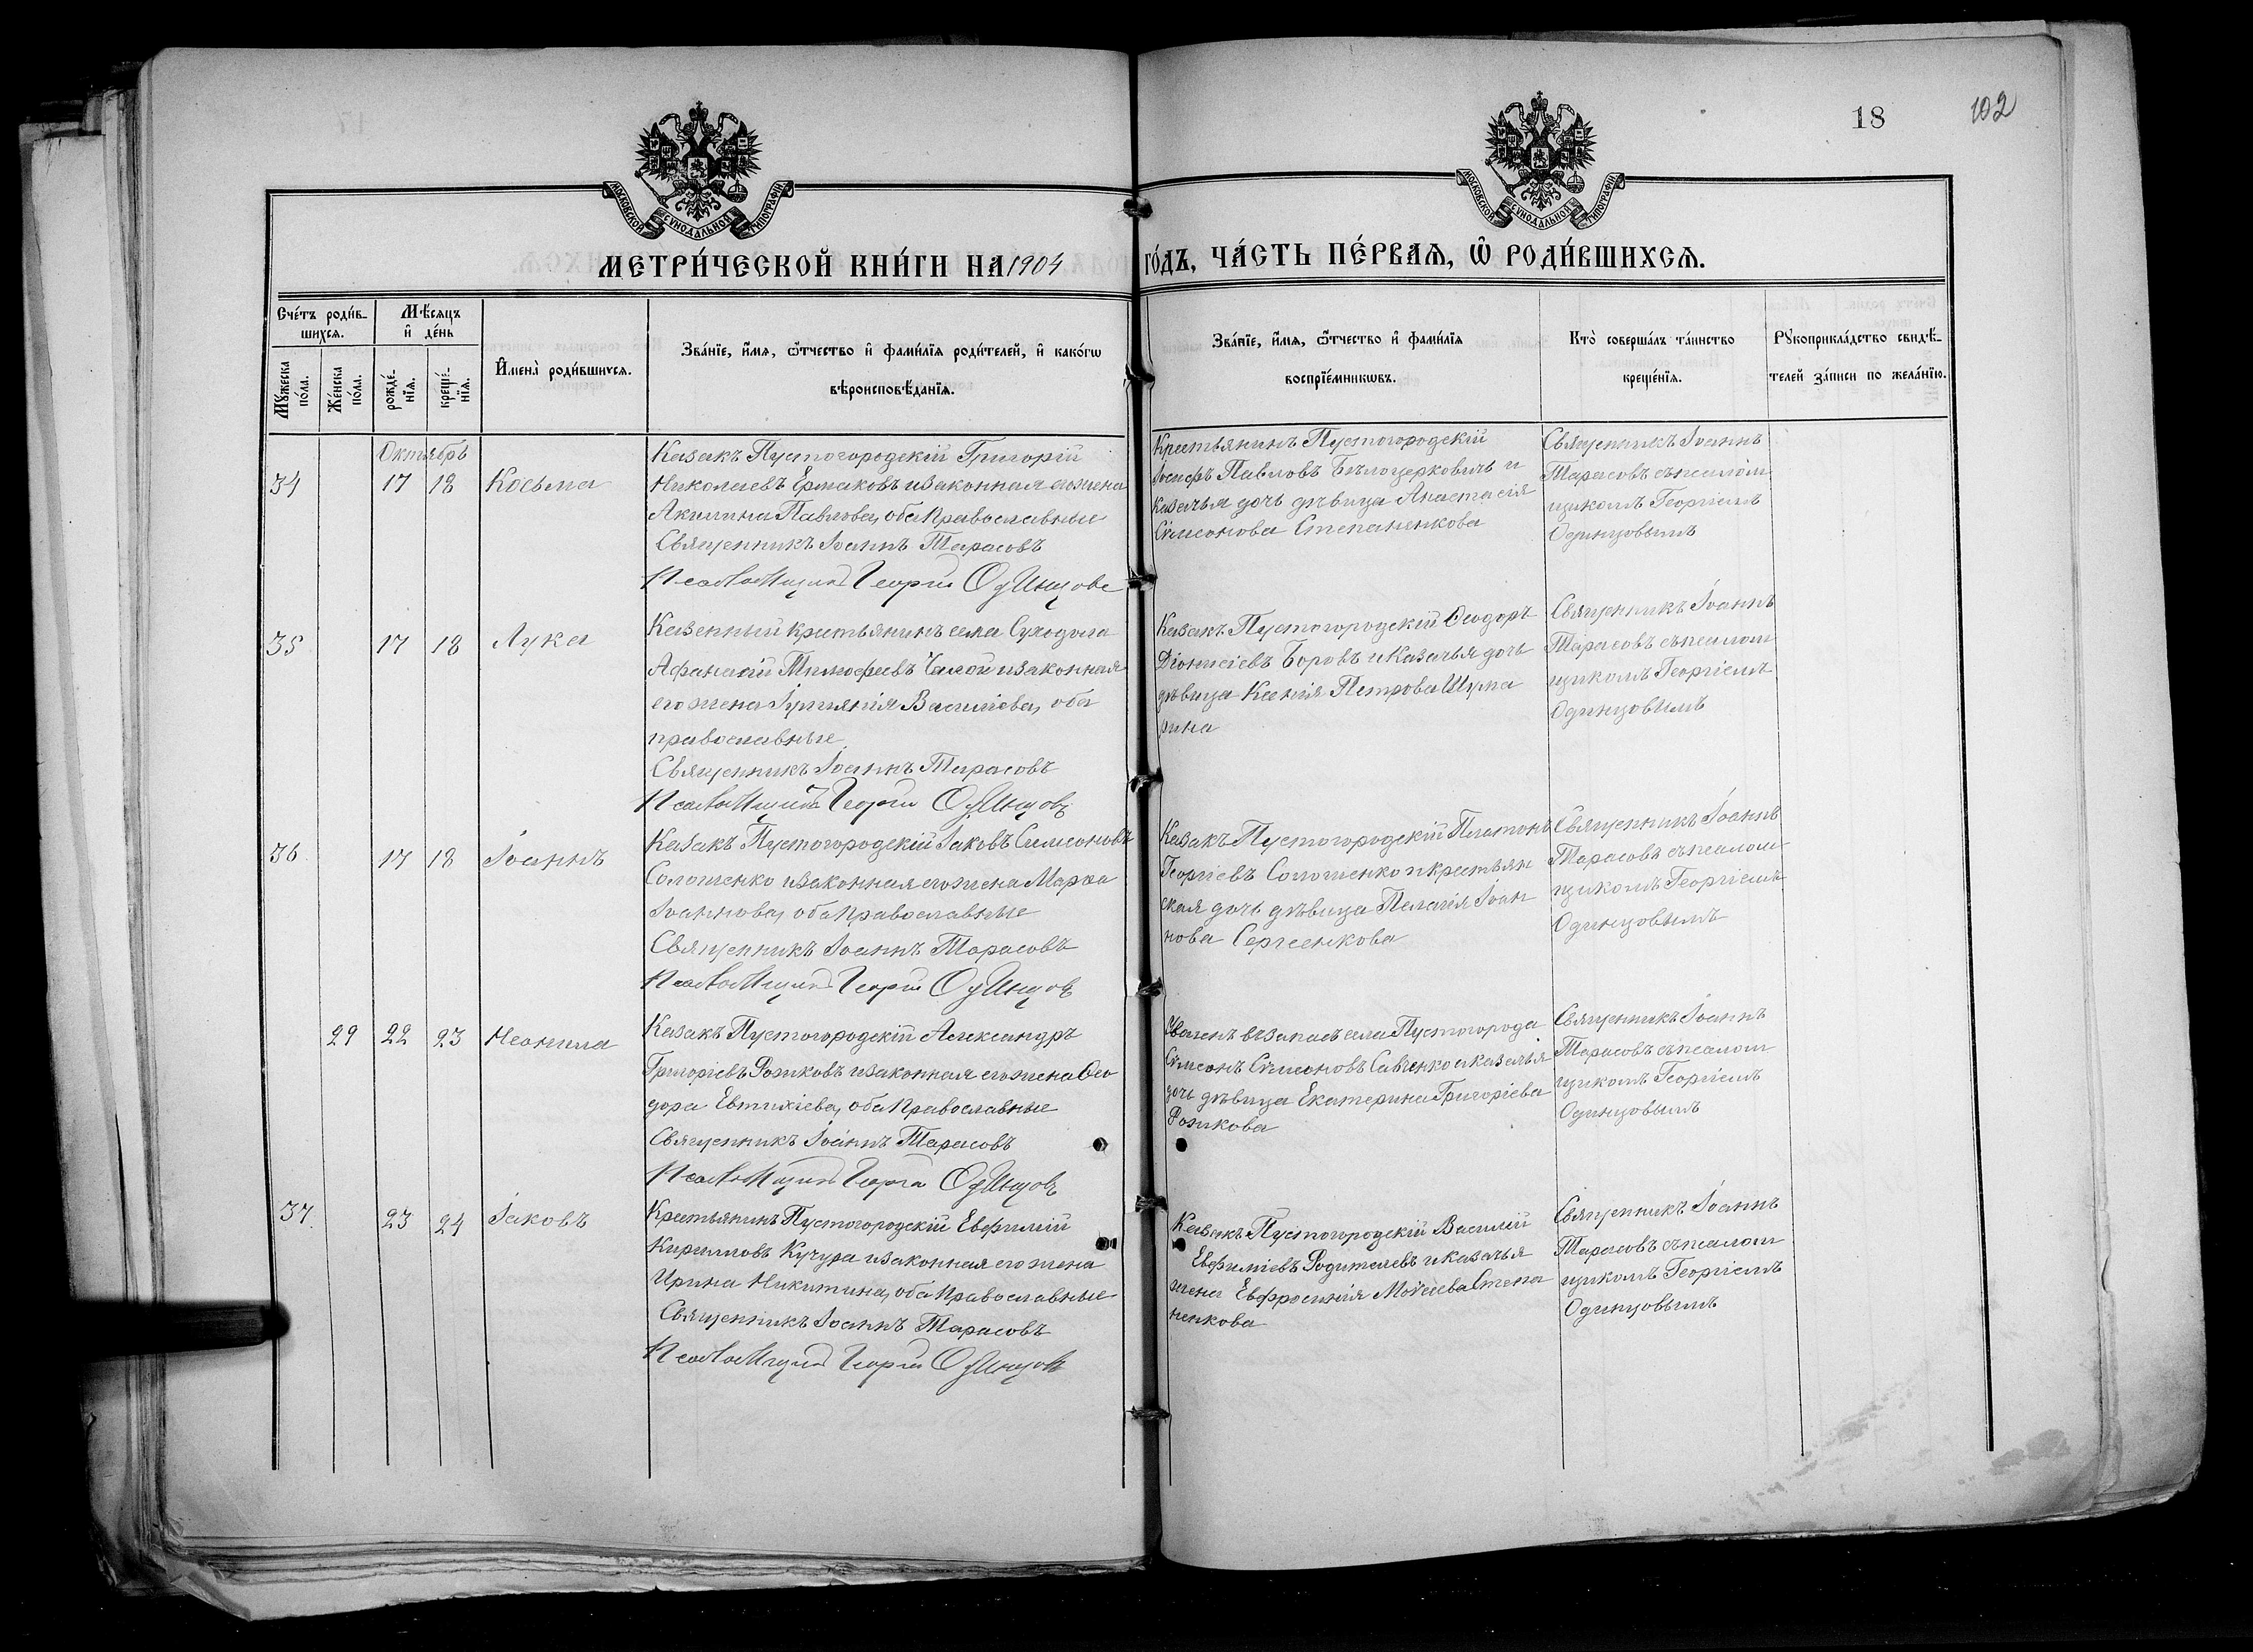 18
102
МОСКОВСКОЙ СѴНОДАЛЬНОЙ ТИПОГРАФІИ
МОСКОВСКОЙ СѴНОДАЛЬНОЙ ТИПОГРАФІИ
МЕТРИ́ЧЕСКОЙ КНИ́ГИ НА 1904 ГО́ДЪ, ЧА́СТЬ ПЕ́РВАѦ, Ѡ҆ РОДИ́ВШИХСѦ.
Сче́тъ роди́в-
шихсѧ.
Мꙋ́жеска по́ла.
Же́нска по́ла.
Мѣ́сѧцъ
и҆ де́нь
рожде́-
нїѧ.
креще́-
нїѧ.
И҆мена̀ роди́вшихсѧ.
Зва́нїе, и҆́мѧ, ѻ҆́тчество и҆ фами́лїѧ роди́телей, и҆ како́гѡ
вѣроисповѣ́данїѧ.
Зва́нїе, и҆́мѧ, ѻ҆́тчество и҆ фами́лїѧ
воспрїе́мникѡвъ.
Кто̀ соверша́лъ та́инство
креще́нїѧ.
Рꙋкоприкла́дство свидѣ́-
телей за́писи по жела́нїю.
Октябрь
34 17 18 Косьма
Казакъ Пустогородскій Григорій
Николаевъ Ермаковъ и законная его жена
Акилина Павлова, оба православные
Священникъ Іоаннъ Тарасовъ
Псаломщикъ Георгій Одинцовъ
Крестьянинъ Пустогородскій
Іосифъ Павловъ Бѣлоцерковичъ и
Казачья дочь дѣвица Анастасія
Сѵмеонова Степаненкова
Священникъ Іоаннъ
Тарасовъ съ псалом
щикомъ Георгіемъ
Одинцовымъ
35 17 18 Лука
Казенный крестьянинъ села Суходола
Афанасій Тимофеевъ Чалой и законная
его жена Іуліанія Василіева, оба
православные
Священникъ Іоаннъ Тарасовъ
Псаломщикъ Георгій Одинцовъ
Казакъ Пустогородскій Ѳеодоръ
Діонисіевъ Боровъ и Казачья дочь
дѣвица Ксенія Петрова Шума
рина
Священникъ Іоаннъ
Тарасовъ съ псалом
щикомъ Георгіемъ
Одинцовымъ
36 17 18 Іоаннъ
Казакъ Пустогородскій Іаковъ Симеоновъ
Соломенко и законная его жена Марѳа
Іоаннова, оба православные
Священникъ Іоаннъ Тарасовъ
Псаломщикъ Георгій Одинцовъ
Казакъ Пустогородскій Платонъ
Георгіевъ Соломенко и крестьян
ская дочь дѣвица Пелагія Іоан
нова Сергеенкова
Священникъ Іоаннъ
Тарасовъ съ псалом
щикомъ Георгіемъ
Одинцовымъ
29 22 23 Неонила
Казакъ Пустогородскій Александръ
Григоріевъ Рожковъ и законная его жена Ѳео
дора Евтихіева, оба православные
Священникъ Іоаннъ Тарасовъ
Псаломщикъ Георгій Одинцовъ
Уволенъ въ запасъ села Пустогорода
Сѵмеонъ Сѵмеоновъ Савченко и казачья
дочь дѣвица Екатерина Григоріева
Рожкова
Священникъ Іоаннъ
Тарасовъ съ псалом
щикомъ Георгіемъ
Одинцовымъ
37. 23 24 Іаковъ
Крестьянинъ Пустогородскій Евфимій
Кирилловъ Кучура и законная его жена
Ирина Никитина, оба православные
Священникъ Іоаннъ Тарасовъ
Псаломщикъ Георгій Одинцовъ
Казакъ Пустогородскій Василій
Евфиміевъ Родителевъ и казачья
жена Евфросинія Моѵсеева Степа
ненкова
Священникъ Іоаннъ
Тарасовъ съ псалом
щикомъ Георгіемъ
Одинцовымъ